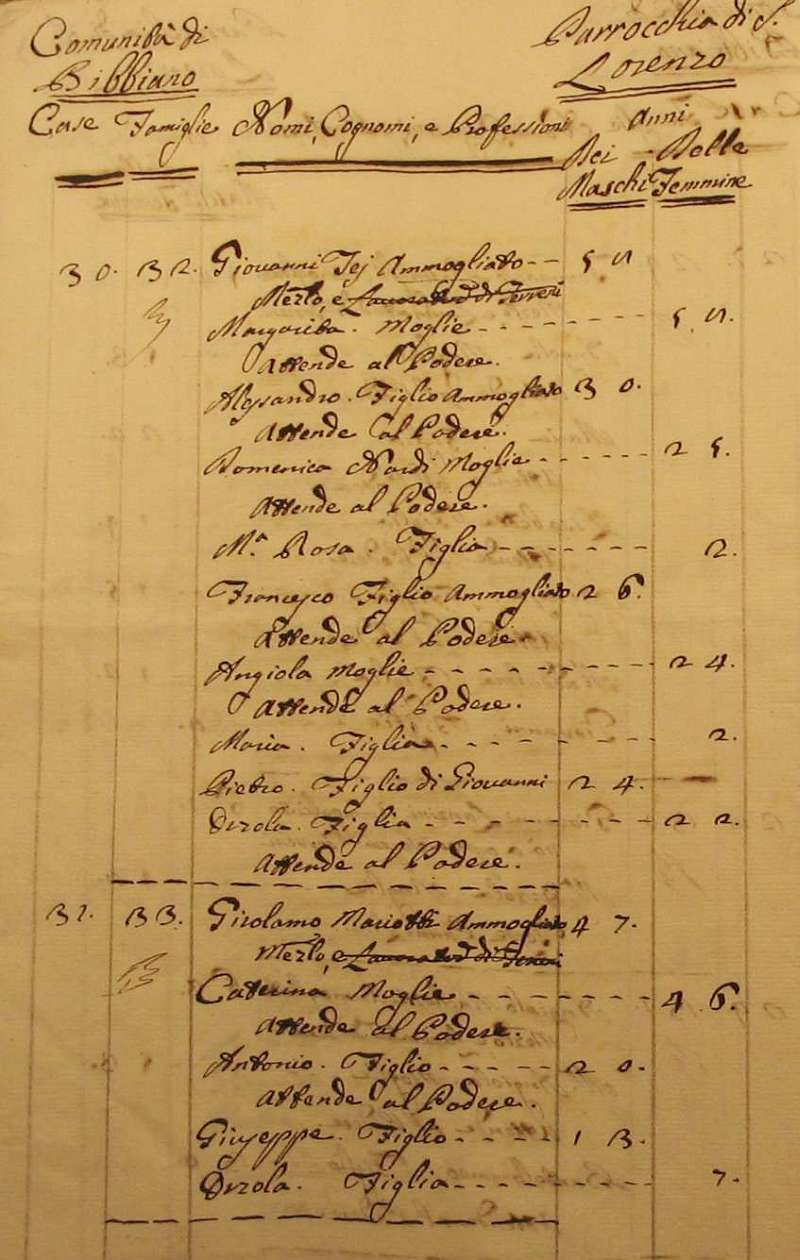 Comunità di
Bibbiano
Parrocchia di S.
Lorenzo
Case Famiglie Nomi, Cognomi, e Professioni
Anni
Dei Delle
Maschi Femmine
30. 32. Giovanni Tej Ammogliato -- 5
Merlo, e Lavorator di Terreni
Margarita. Moglie 5
Attende al Podere.
Alessandro. Figlio Ammogliato 30.
Attende al Podere.
Domenica Nardi Moglie 25.
Attende al Podere.
M.a Rosa. Figlia 2.
Francesco Figlio Ammogliato 26.
Attende al Podere.
Angiola Moglie 24.
Attende al Podere.
Maria. Figlia 2.
Pietro. Figlio di Giovanni 24.
Orsola. Figlia 22.
Attende al Podere.
31. 33. Girolamo Mariotti Ammogliato 47.
Merlo, e Lavorator di Terreni
Caterina Moglie 46.
Attende al Podere.
Antonio. Figlio 20.
Attende al Podere.
Giuseppe. Figlio 13.
Orsola. Figlia 7.